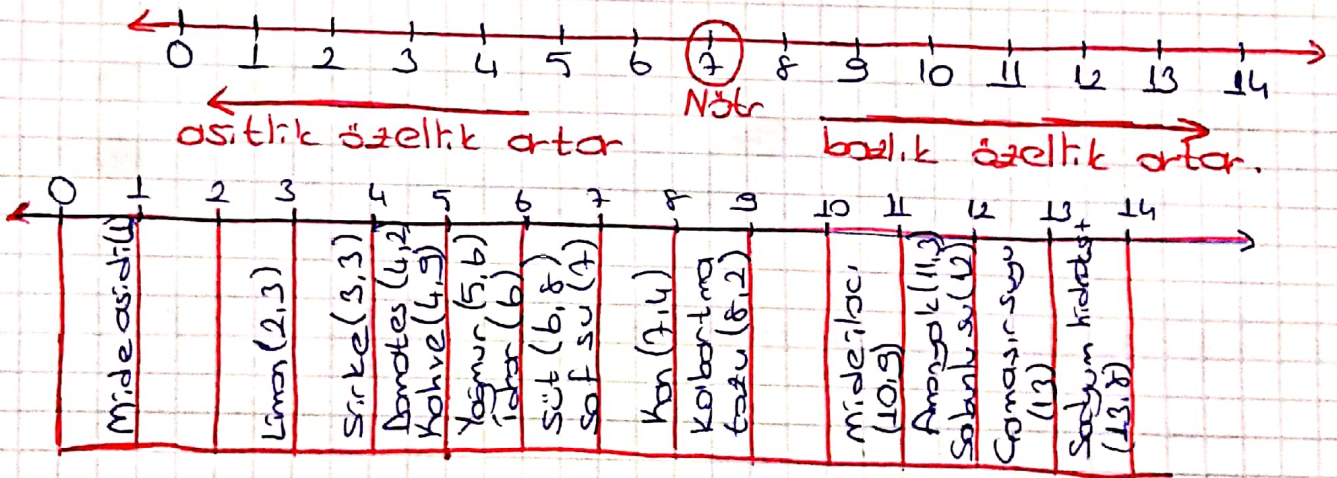 0 1 2 3 4 5 6 7 8 9 10 11 12 13 14
Nötr
asitlik özellik artar
bazlık özellik artar.
0 1 2 3 4 5 6 7 8 9 10 11 12 13 14
Mide asidi (1)
Limon (2,3)
Sirke (3,3)
Domates (4,2)
Kahve (4,9)
Yağmur (5,6)
İdrar (6)
Süt (6,8)
Saf su (7)
Kan (7,4)
Kabartma
tozu (8,2)
Mide ilacı
(10,9)
Amonyak (11,3)
Sabunlu su (12)
Çamaşır suyu
(13)
Sodyum hidroksit
(13,8)